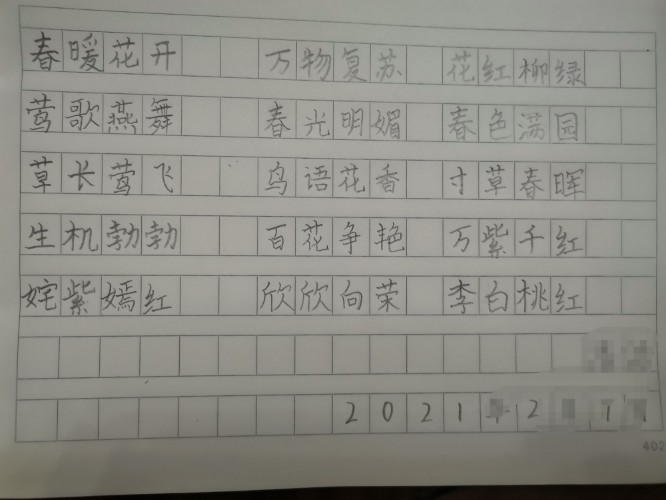 春暖花开 万物复苏 花红柳绿
莺歌燕舞 春光明媚 春色满园
草长莺飞 鸟语花香 寸草春晖
生机勃勃 百花争艳 万紫千红
姹紫嫣红 欣欣向荣 李白桃红
2021 2
402